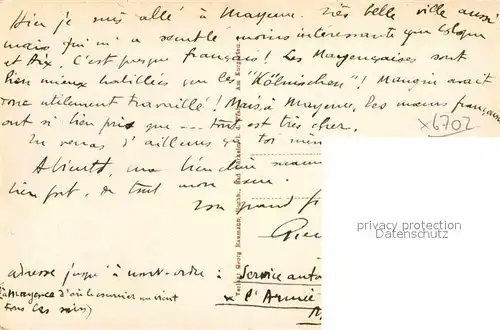 Hier je suis allé à Mayence. Très belle ville aussi
mais qui m'a semblé moins intéressante que Cologne
et Aix. C'est presque français! Les Mayençaises sont
bien mieux habillées que les "Kölnischen"! Mangin avait
donc utilement travaillé! Mais, à Mayence, les mœurs françaises
ont si bien pris que --- tout est très cher.
Tu verras d'ailleurs toi
A bientôt, ma bien
bien fort, de tout mon cœur.
Ton grand
adresse jusqu'à contre-ordre à Service
(à Mayence d'où le courrier me vient
tous les soirs)
l'Armée
Verlag Georg Baumann,
x6702
privacy protection
privacy protection